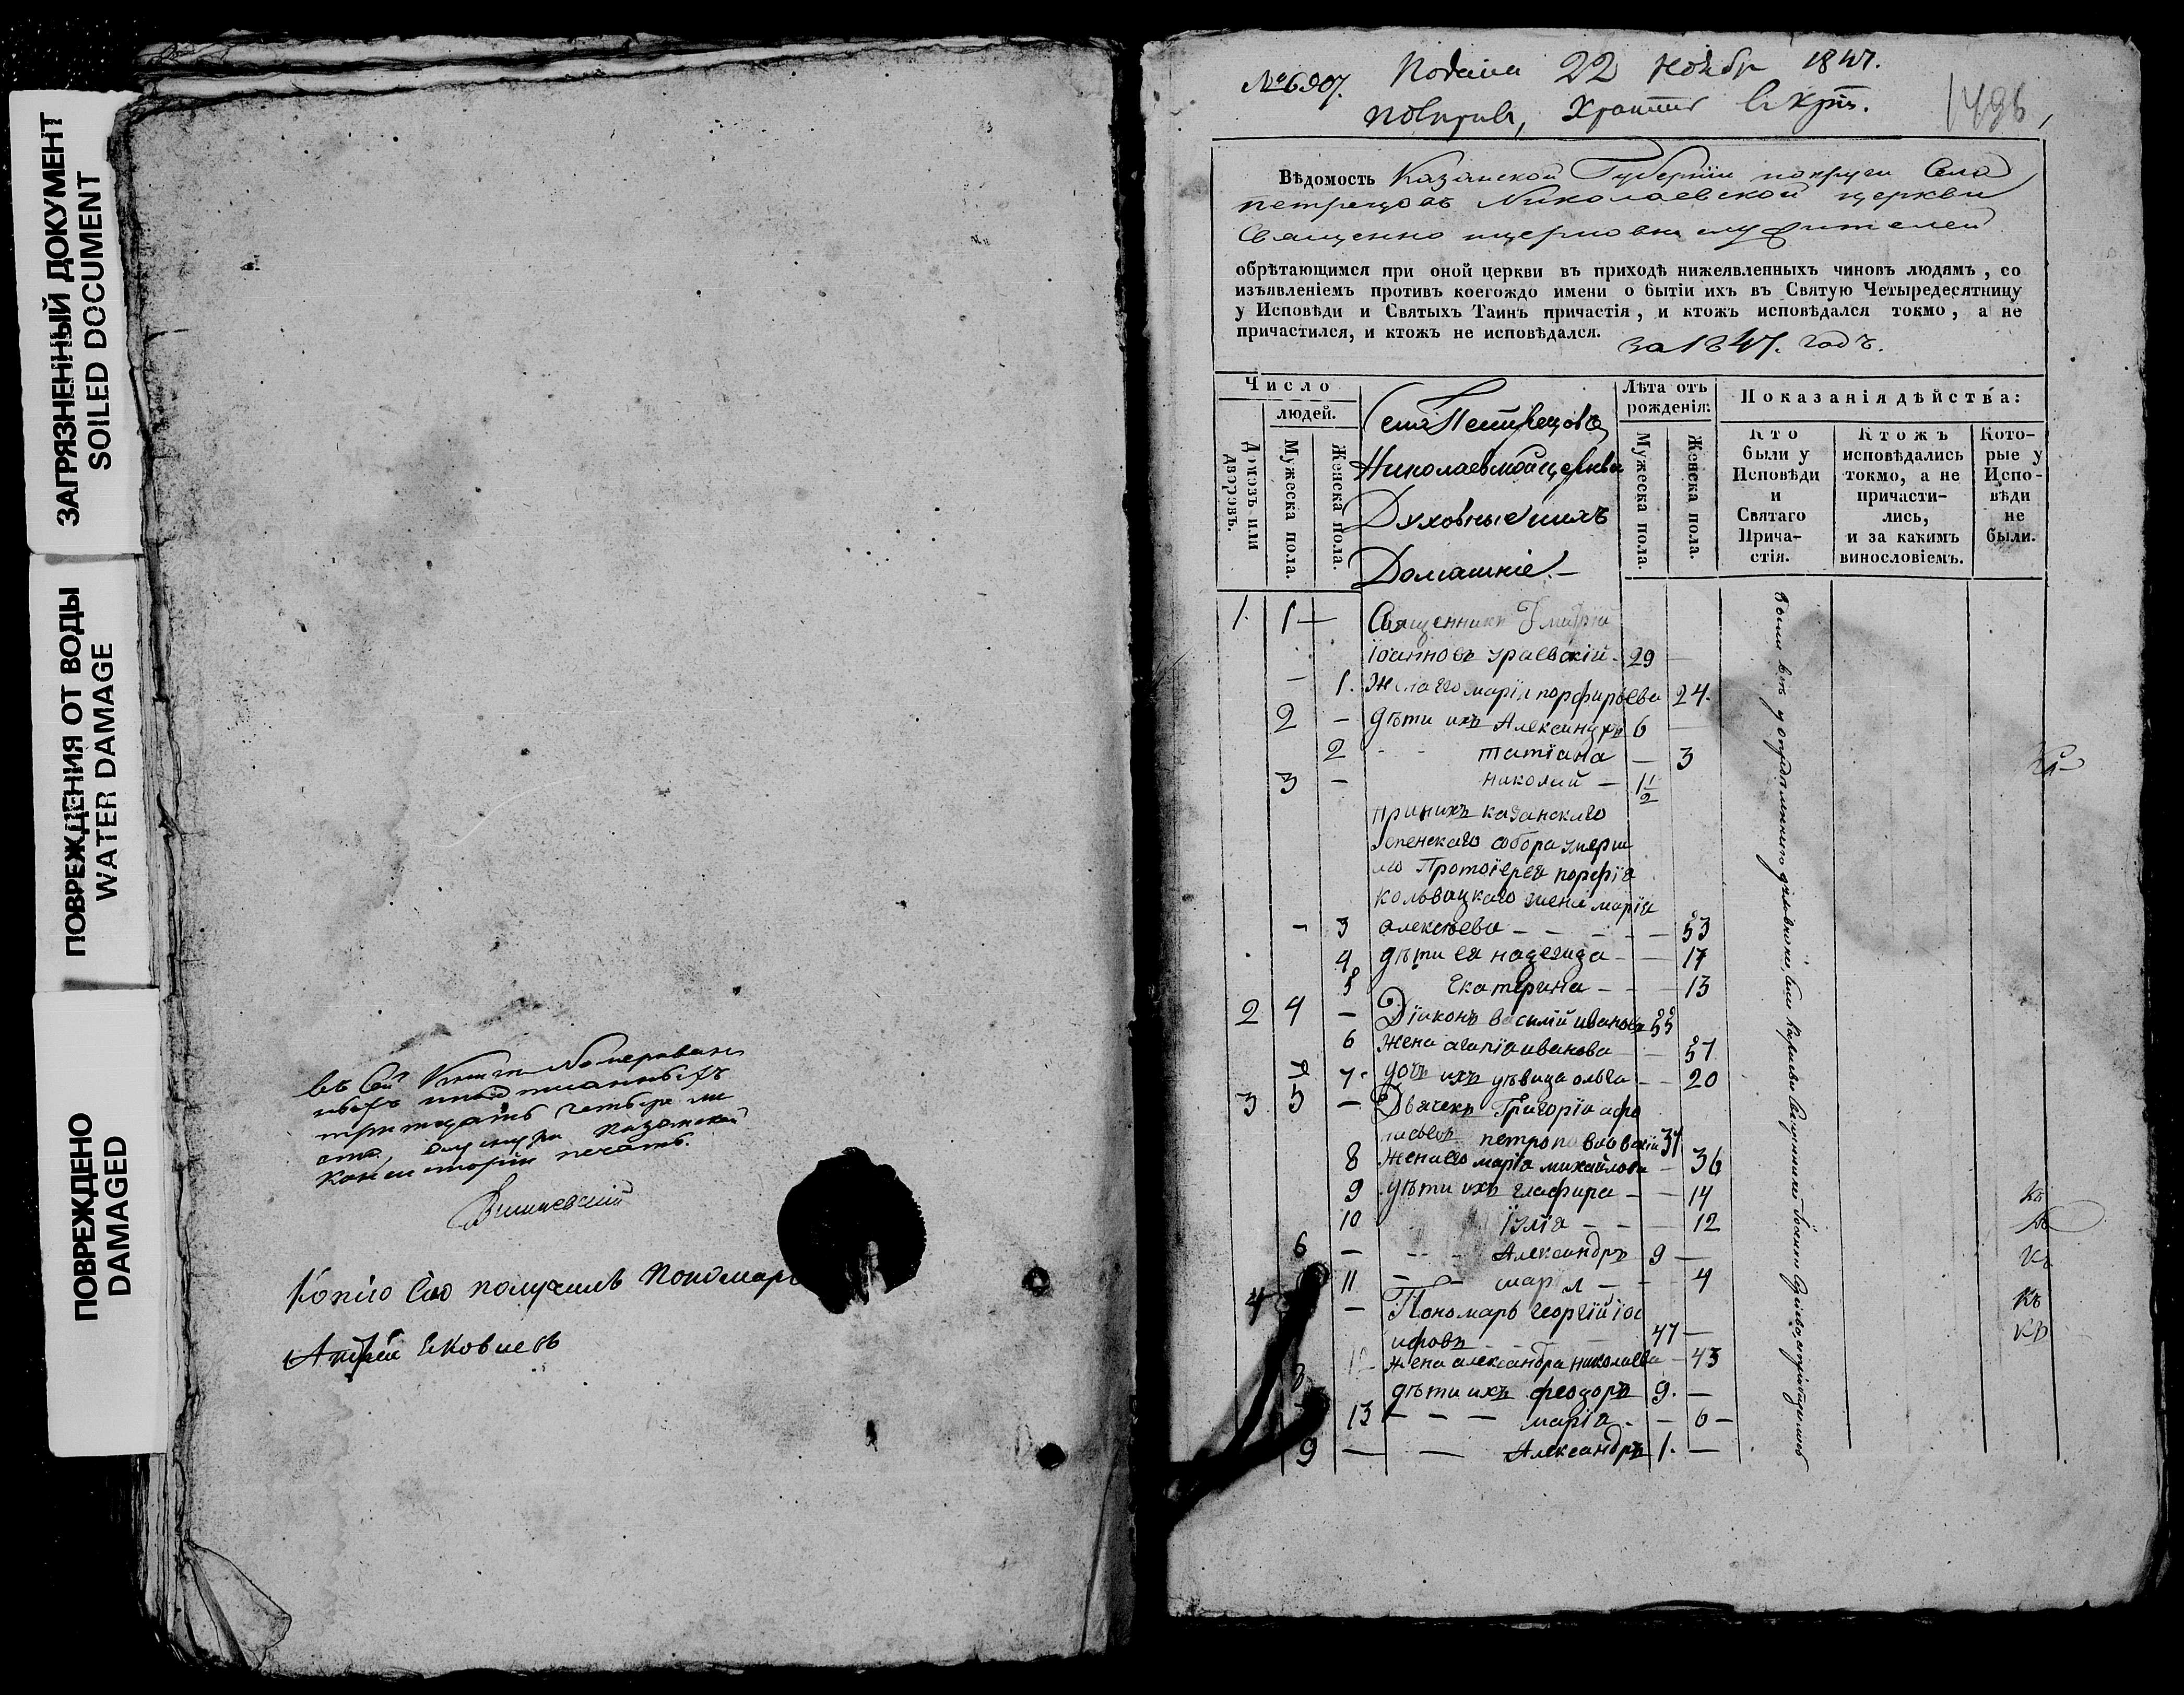 ЗАГРЯЗНЕННЫЙ ДОКУМЕНТ
SOILED DOCUMENT
ПОВРЕЖДЕНИЯ ОТ ВОДЫ
WATER DAMAGE
ПОВРЕЖДЕНО
DAMAGED
въ Сей Книге Номерован
ныхъ
тритцать четыре ли
ста, Казанской
консисторіи печать.
Вишневскій
Копію Сію получилъ Пономарь
Андрей Яковлевъ
№ 6907. Подана 22 Ноябр 1847.
1496
Вѣдомость Казанской Губерніи иокруги Села
петрецовъ Николаевской церкви
Священно ицерковно служителей
обрѣтающимся при оной церкви въ приходѣ нижеявленныхъ чиновъ людямъ , со
изъявленіемъ противъ коегождо имени о бытіи ихъ въ Святую Четыредесятницу
у Исповѣди и Святыхъ Таинъ причастія , и ктожъ исповѣдался токмо , а не
причастился, и ктожъ не исповѣдался.
за 1847. годъ.
Число
людей.
Домовъ или дворовъ.
Мужеска пола.
Женска пола.
Села Петрецовъ
Николаевской церкви
Духовные иихъ
Домашніе.—
Лѣта отъ рожденія:
Мужеска пола.
Женска пола.
Показанія дѣйства:
Кто были у Исповѣди и Святаго Прича- стія.
Ктожъ исповѣдались токмо, а не причасти- лись, и за какимъ винословіемъ.
Кото- рые у Испо- вѣди не были.
1. 1 — Священникъ Димитрій
Іоанновъ Ураевскій 29 —
— 1. Жена его марія порфирьева 24.
2 — дѣти ихъ Александръ 6 —
2 - - татіана — 3
3 — николай — 1 1/2
принихъ казанскаго
Успенскаго собора умерш
аго Протоіерея порфирія
жена марія
— 3 алексѣева — — — — 53
4 дѣти ея надежда — — 17
5 Екатерина — — 13
2 4 — Діаконъ василій ивановъ 55
6 Жена агапіа иванова — 51
7 дочь ихъ дѣвица ольга — — 20
3 5 — Дьячекъ Григорій афо
насьевъ петропавловскій 37
8 Жена его марія михайлова — 36
9 дѣти ихъ глафира — — 14
10 Іулія — — — 12
6 — — — Александръ 9 —
11 — — марія — — 4
4 — Пономарь георгій іос
ифовъ 47 —
12 жена александра николаева — 43
8 дѣти ихъ феодоръ 9. —
13 — — — марія — — 6 —
9 — — Александръ 1. —